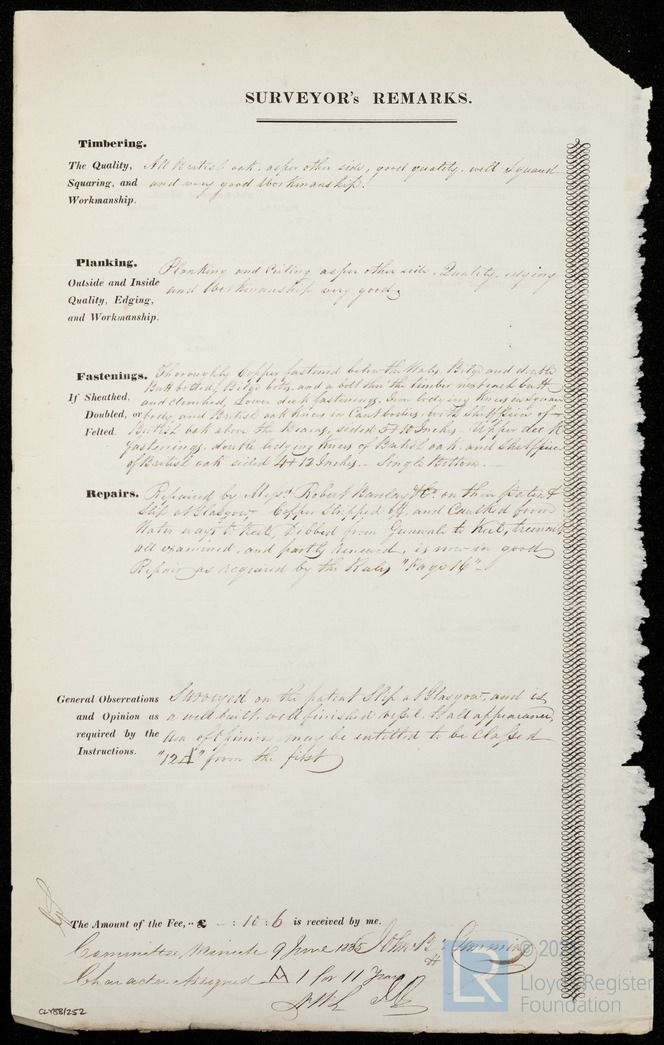 SURVEYOR's REMARKS.
Timbering.
The Quality, Squaring, and Workmanship.
All British oak, as per other side, good quality, well Squared
and very good Workmanship.
Planking.
Outside and Inside Quality, Edging, and Workmanship.
Planking and Ceiling as per other side. Quality, edging
and Workmanship very good,
Fastenings.
If Sheathed, Doubled, or Felted.
Thoroughly Copper fastened below the Wales, Bilge and double
Butt bolted, Bilge bolts, and a bolt thro' the timber next each butt
and clenched, Lower deck fastenings, Iron lodging knees in Square
body, and British oak knees in Cant bodies, with Shelf Piece of
British oak above the Beams, sided 5 + 10 Inches. Upper deck
fastenings, double lodging knees of British oak, and Shelf piece
of British oak sided 4 + 12 Inches. Single Bottom.
Repairs.
Repaired by Messrs Robert Barclay & Co on their Patent
Slip at Glasgow. Copper Stripped off, and Caulked from
Water ways to Keel, Dubbed from Gunwale to Keel, treenails
all examined, and partly renewed, is now in good
Repair as required by the Rules "Page 16"
General Observations and Opinion as required by the Instructions.
Surveyed on the patent Slip at Glasgow, and is
a well built, well finished vessel to all appearance,
of Opinion may be entitled to be Classed
"12 A" from the first
The Amount of the Fee, £ - : 10 : 6 is received by me.
Committee Minute 9 June 1835 John B Cumming
Character Assigned A 1 for 11 Years
CLY581/252
© 202
LR
Lloyd's Register
Foundation